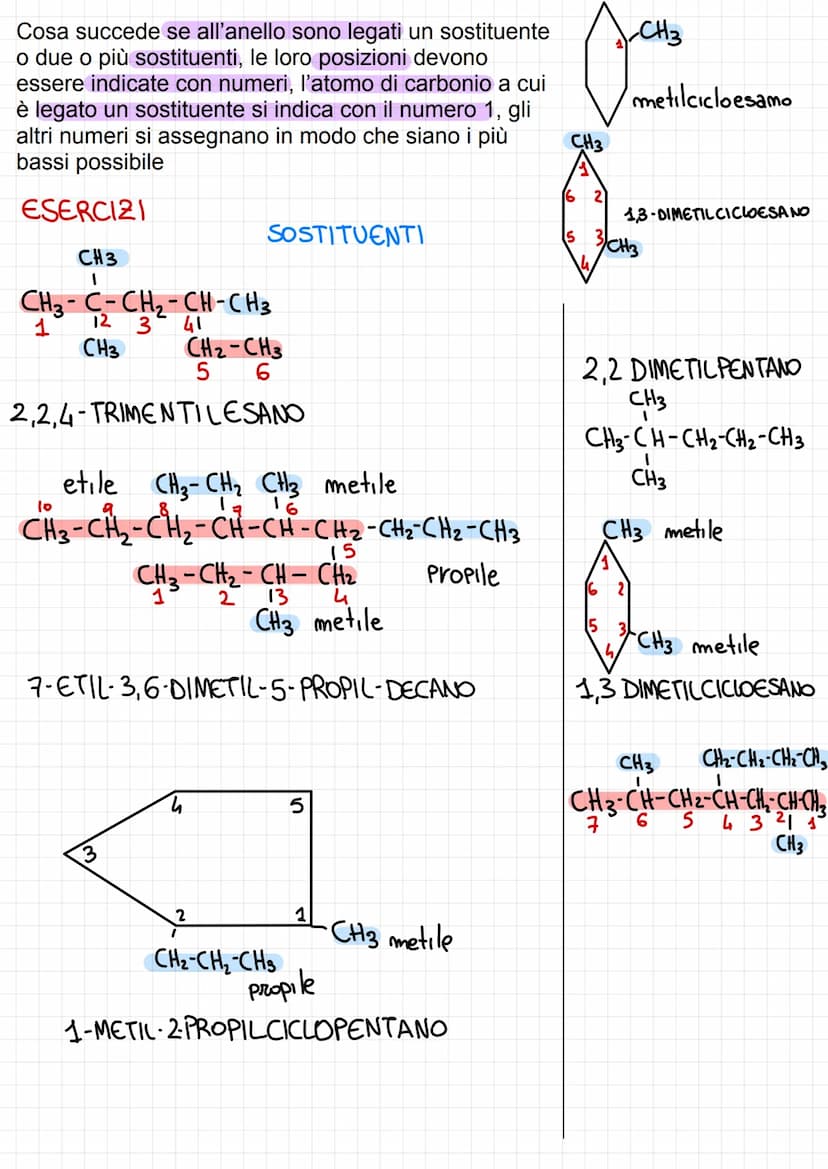 Cosa succede se all'anello sono legati un sostituente
o due o più sostituenti, le loro posizioni devono
essere indicate con numeri, l'atomo di carbonio a cui
è legato un sostituente si indica con il numero 1, gli
altri numeri si assegnano in modo che siano i più
bassi possibile
1 CH3
metilcicloesamo
CH3
1
6 2
5 3 CH3
4
1,3-DIMETILCICLOESANO
ESERCIZI
SOSTITUENTI
CH3
CH3-C-CH2-CH-CH3
1 2 3 4
CH3 CH2-CH3
5 6
2,2,4-TRIMENTILESANO
etile CH3-CH2 CH3 metile
10 9 8 7 6
CH3-CH2-CH2-CH-CH-CH2-CH2-CH2-CH3
5
CH3-CH2-CH-CH2 propile
1 2 3 4
CH3 metile
7-ETIL-3,6-DIMETIL-5-PROPIL-DECANO
4 5
3
2 1
CH3 metile
CH2-CH2-CH3
propile
1-METIL-2-PROPILCICLOPENTANO
2,2 DIMETILPENTANO
CH3
CH3-CH-CH2-CH2-CH3
CH3
CH3 metile
1
6 2
5 3
4 CH3 metile
1,3 DIMETILCICLOESANO
CH3 CH2-CH2-CH2-CH3
CH3-CH-CH2-CH-CH2-CH-CH3
7 6 5 4 3 2 1
CH3